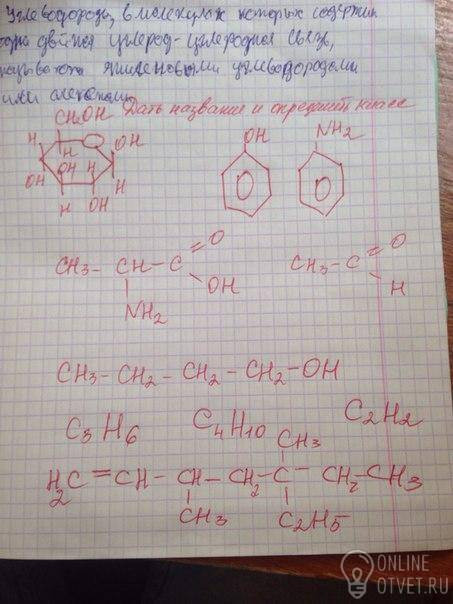 Углеводороды, в молекулах которых содержит
одна двойная углерод-углеродная связь,
называются этиленовыми углеводородами
или алкенами
Дать название и определить класс
CH2OH
H H OH
OH OH H H
H OH
OH
NH2
CH3 - CH - C = O
OH
NH2
CH3 - C = O
H
CH3 - CH2 - CH2 - CH2 - OH
C3H6 C4H10 C2H2
CH3
H2C = CH - CH - CH2 - C - CH2 - CH3
CH3 C2H5
ONLINE
OTVET.RU